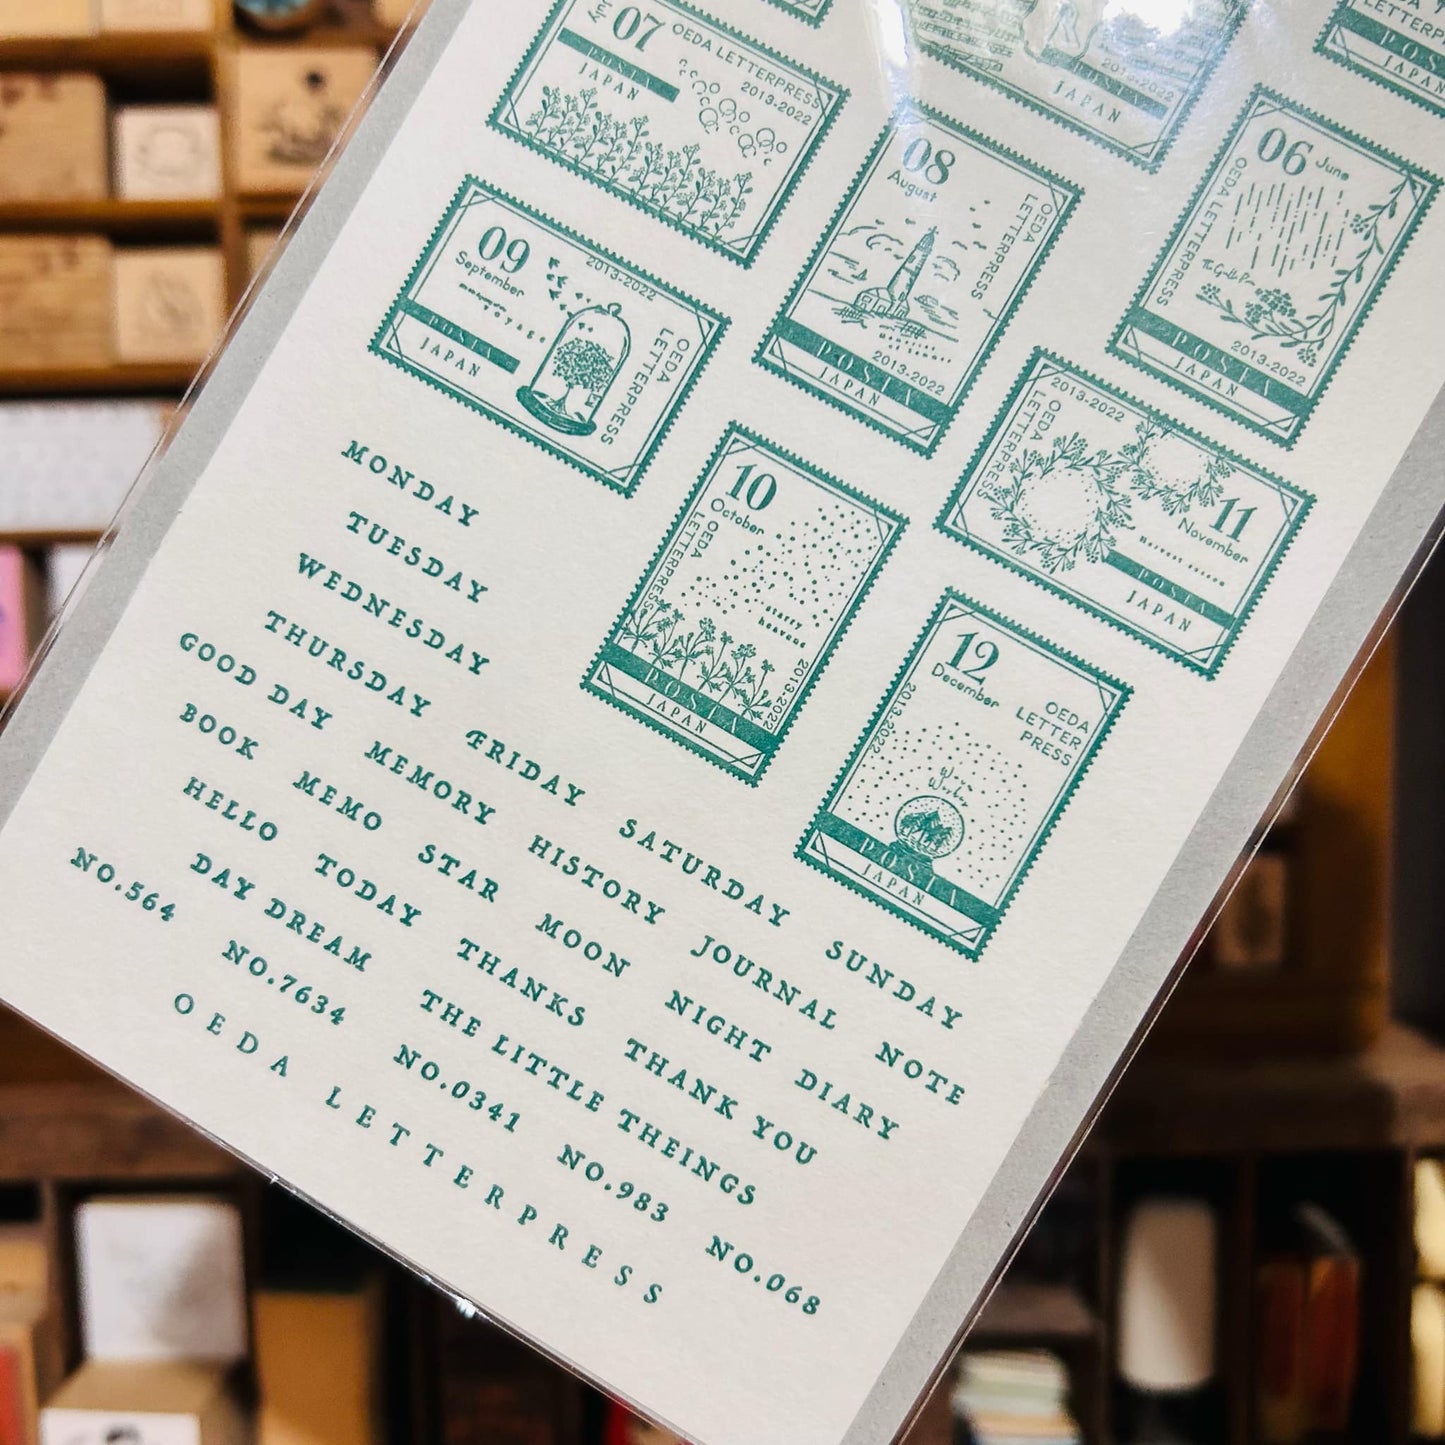 07
July
OEDA LETTERPRESS
2013-2022
POSTA
JAPAN
2013-2022
POSTA
JAPAN
LETTERPRESS
POSTA
JAPAN
08
August
OEDA
LETTERPRESS
POSTA
JAPAN
2013-2022
06 June
OEDA LETTERPRESS
POSTA
JAPAN
2013-2022
09
September
2013-2022
VOYAGE
OEDA
LETTERPRESS
POSTA
JAPAN
10
October
OEDA
LETTERPRESS
starry
heavens
2013-2022
POSTA
JAPAN
2013-2022
OEDA
LETTERPRESS
11
November
Harvest season
POSTA
JAPAN
12
December
2013-2022
OEDA
LETTER
PRESS
POSTA
JAPAN
MONDAY
TUESDAY
WEDNESDAY
THURSDAY FRIDAY SATURDAY SUNDAY
GOOD DAY MEMORY HISTORY JOURNAL NOTE
BOOK MEMO STAR MOON NIGHT DIARY
HELLO TODAY THANKS THANK YOU
DAY DREAM THE LITTLE THEINGS
NO.564 NO.7634 NO.0341 NO.983 NO.068
OEDA LETTERPRESS